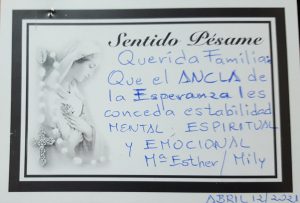 Sentido Pésame
Querida Familia:
Que el ANCLA de
la Esperanza les
conceda estabilidad
MENTAL, ESPIRITUAL
y EMOCIONAL
Mª Esther/Mily
ABRIL 12/2021